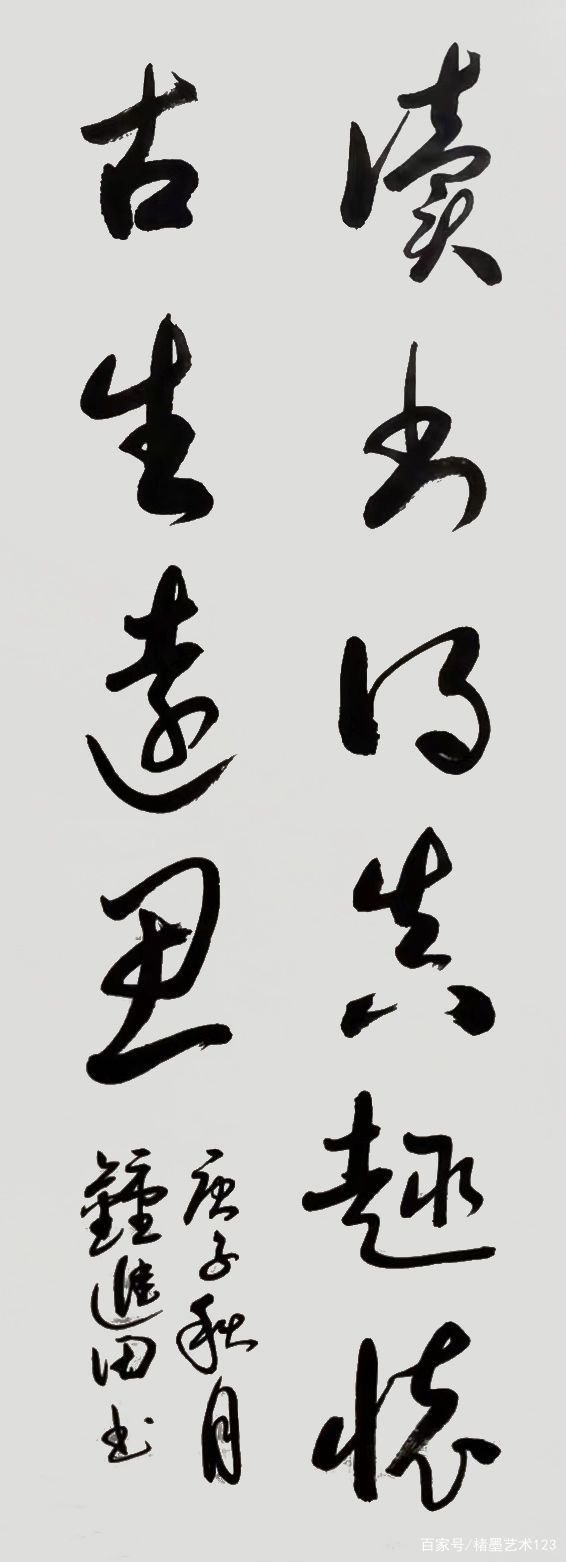 讀书得真趣懷
古生遠思
庚子秋月
鐘進田书
百家号/楮墨艺术123